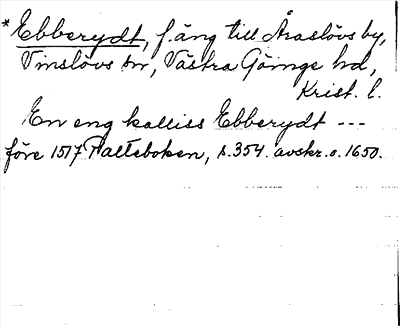 *Ebberydt, f. äng till Åraslövs by,
Vinslövs sn, Västra Göinge hd,
Krist. l.
En eng kalliss Ebberydt ---
före 1517 Falteboken, s. 354. avskr. o. 1650.